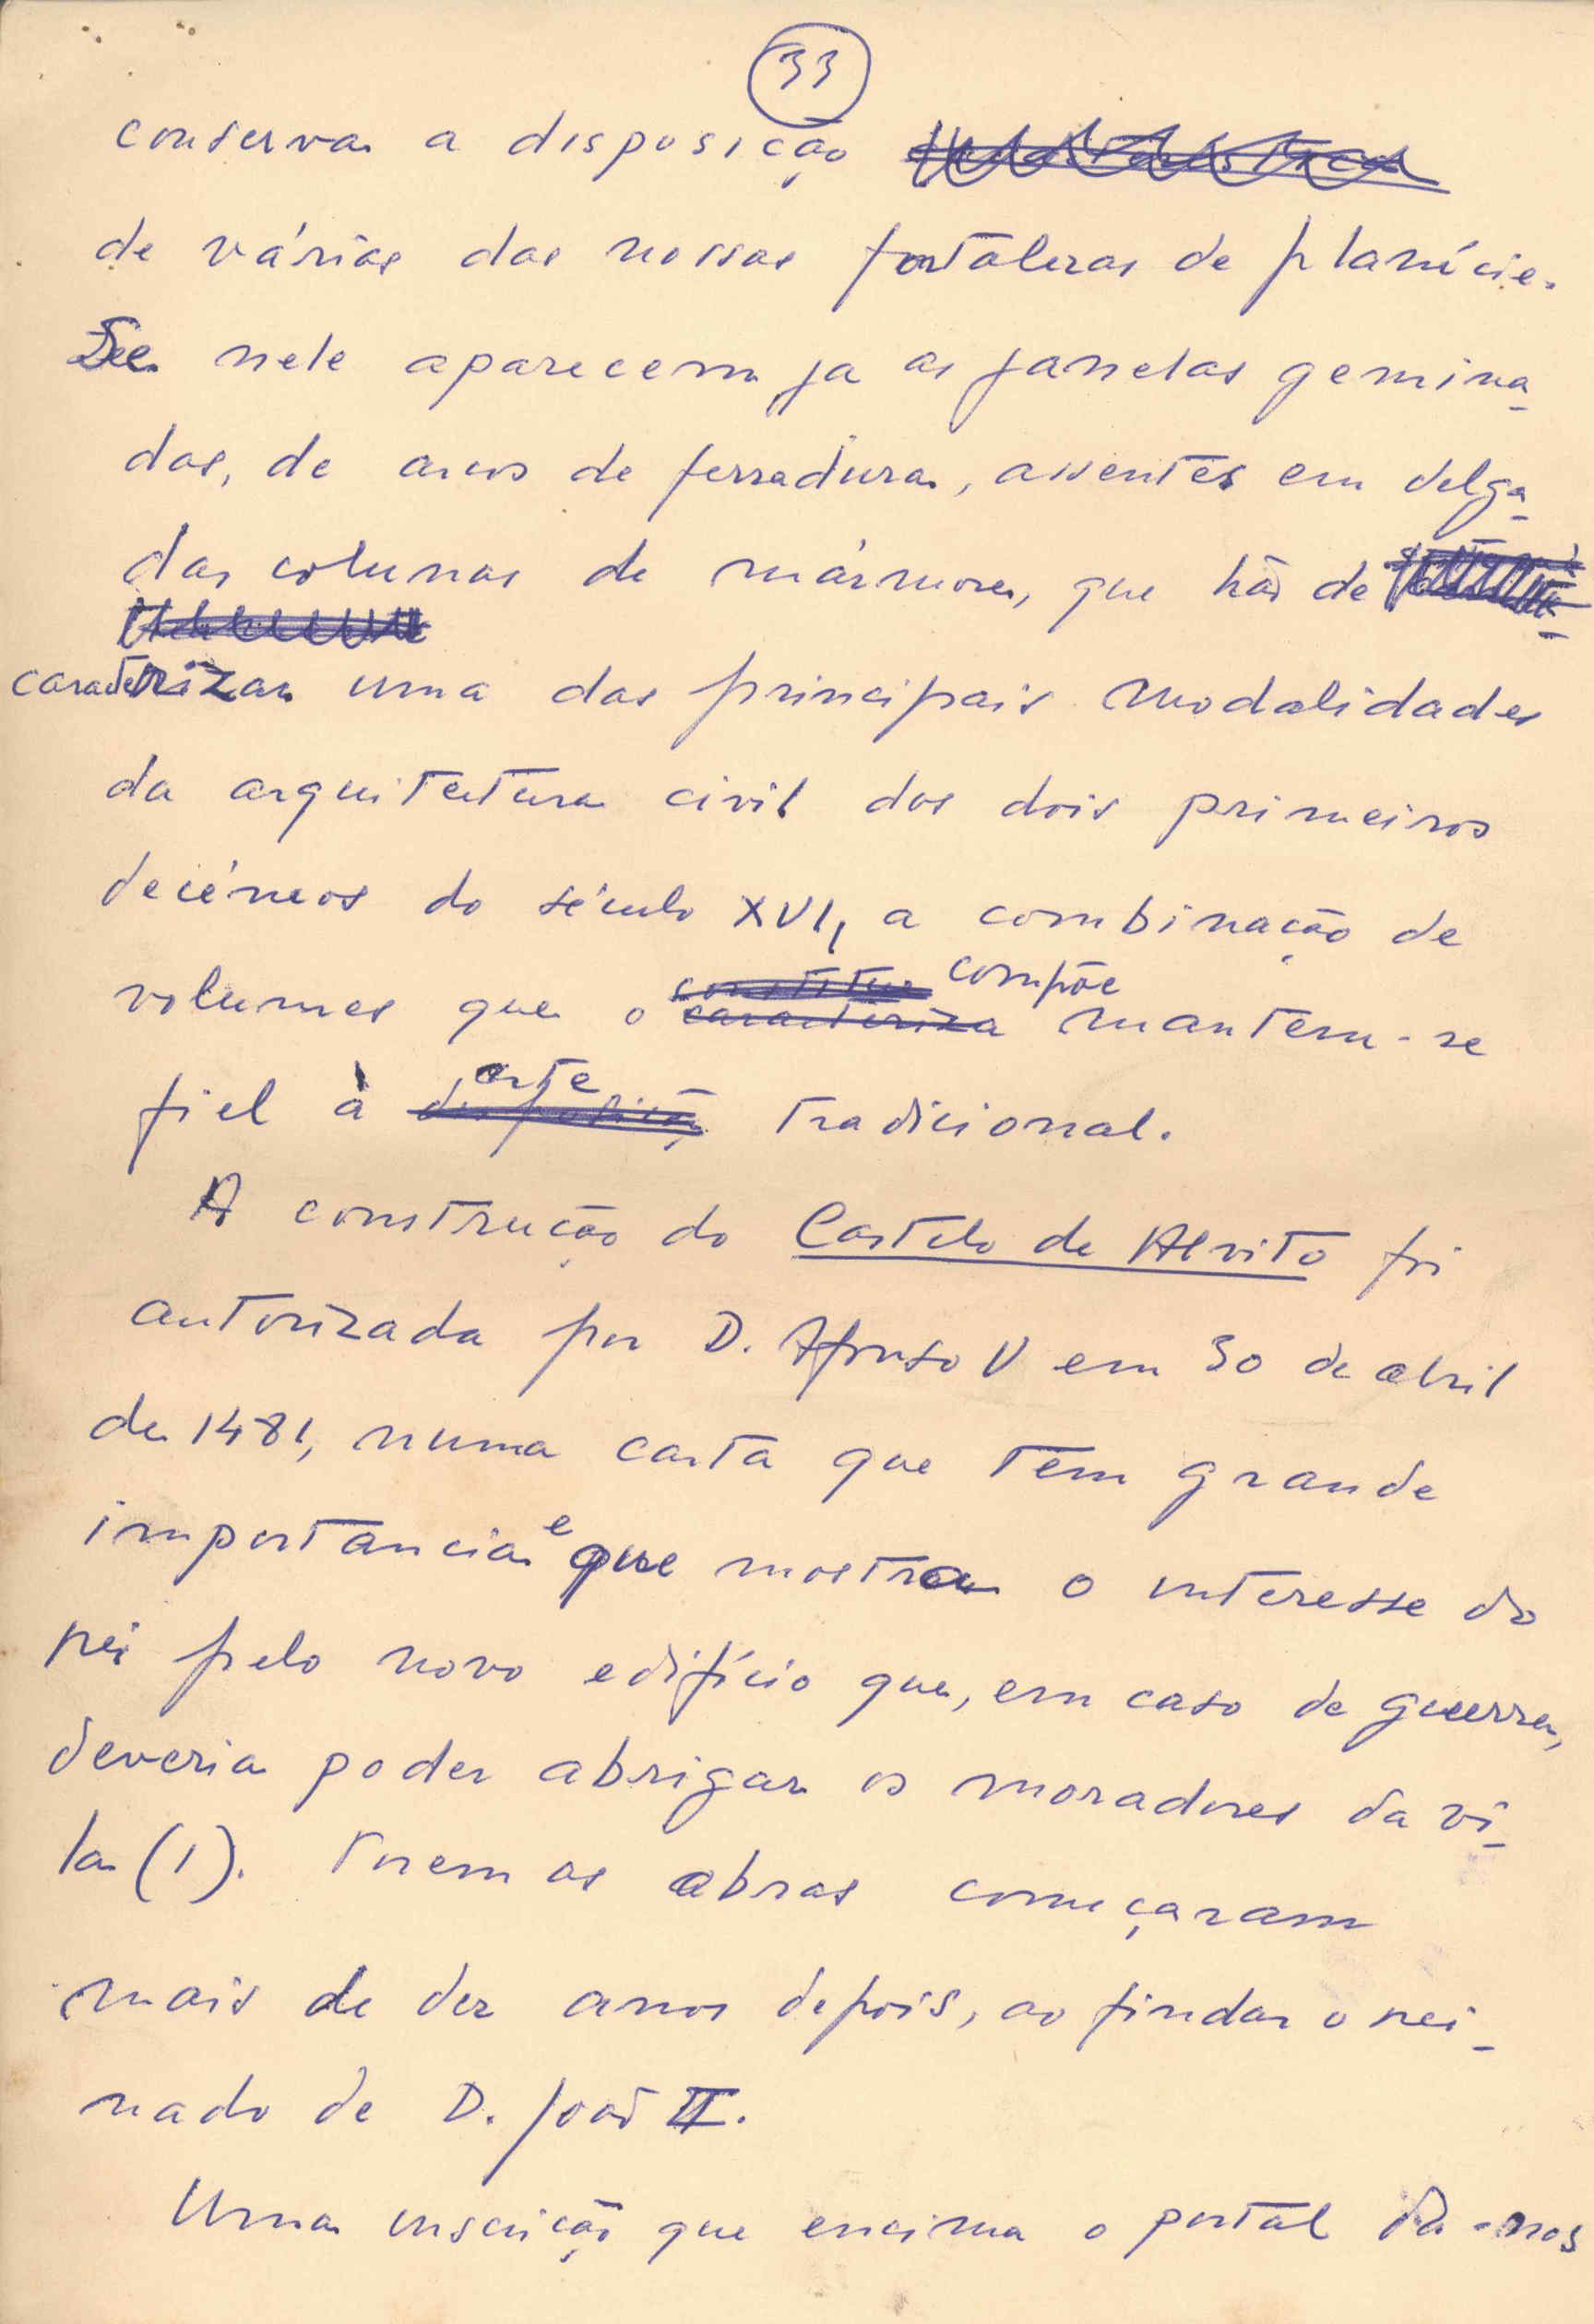 33
conserva a disposição
de várias das nossas fortalezas de planície.
Se nele aparecem já as janelas gemina-
das, de arcos de ferradura, assentes em delga-
das colunas de mármore, que hão de
caracterizar uma das principais modalidades
da arquitectura civil dos dois primeiros
decéneos do século XVI, a combinação de
constitue compõe
volumes que o caracteriza mantem-se
arte
fiel à disposição tradicional.
A construção do Castelo de Alvito foi
autorizada por D. Afonso V em 30 de abril
de 1481, numa carta que tem grande
importancia e que mostra o interesse do
rei pelo novo edifício que, em caso de guerra,
deveria poder abrigar os moradores da vi-
la (1). Porem as obras começaram
mais de dez anos depois, ao findar o rei-
nado de D. João II.
Uma inscrição que encima o portal dá-nos